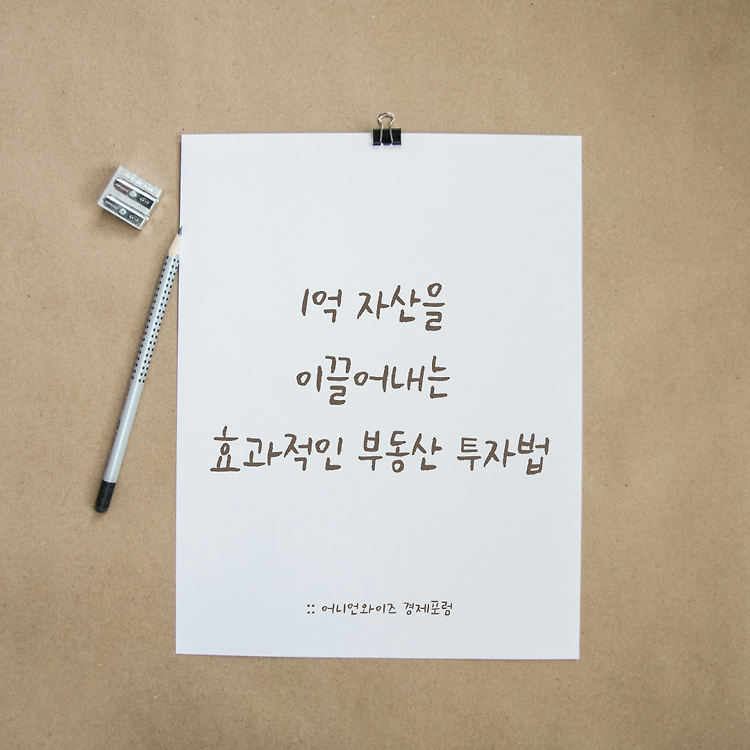 1억 자산을
이끌어내는
효과적인 부동산 투자법
:: 어니언와이즈 경제포럼